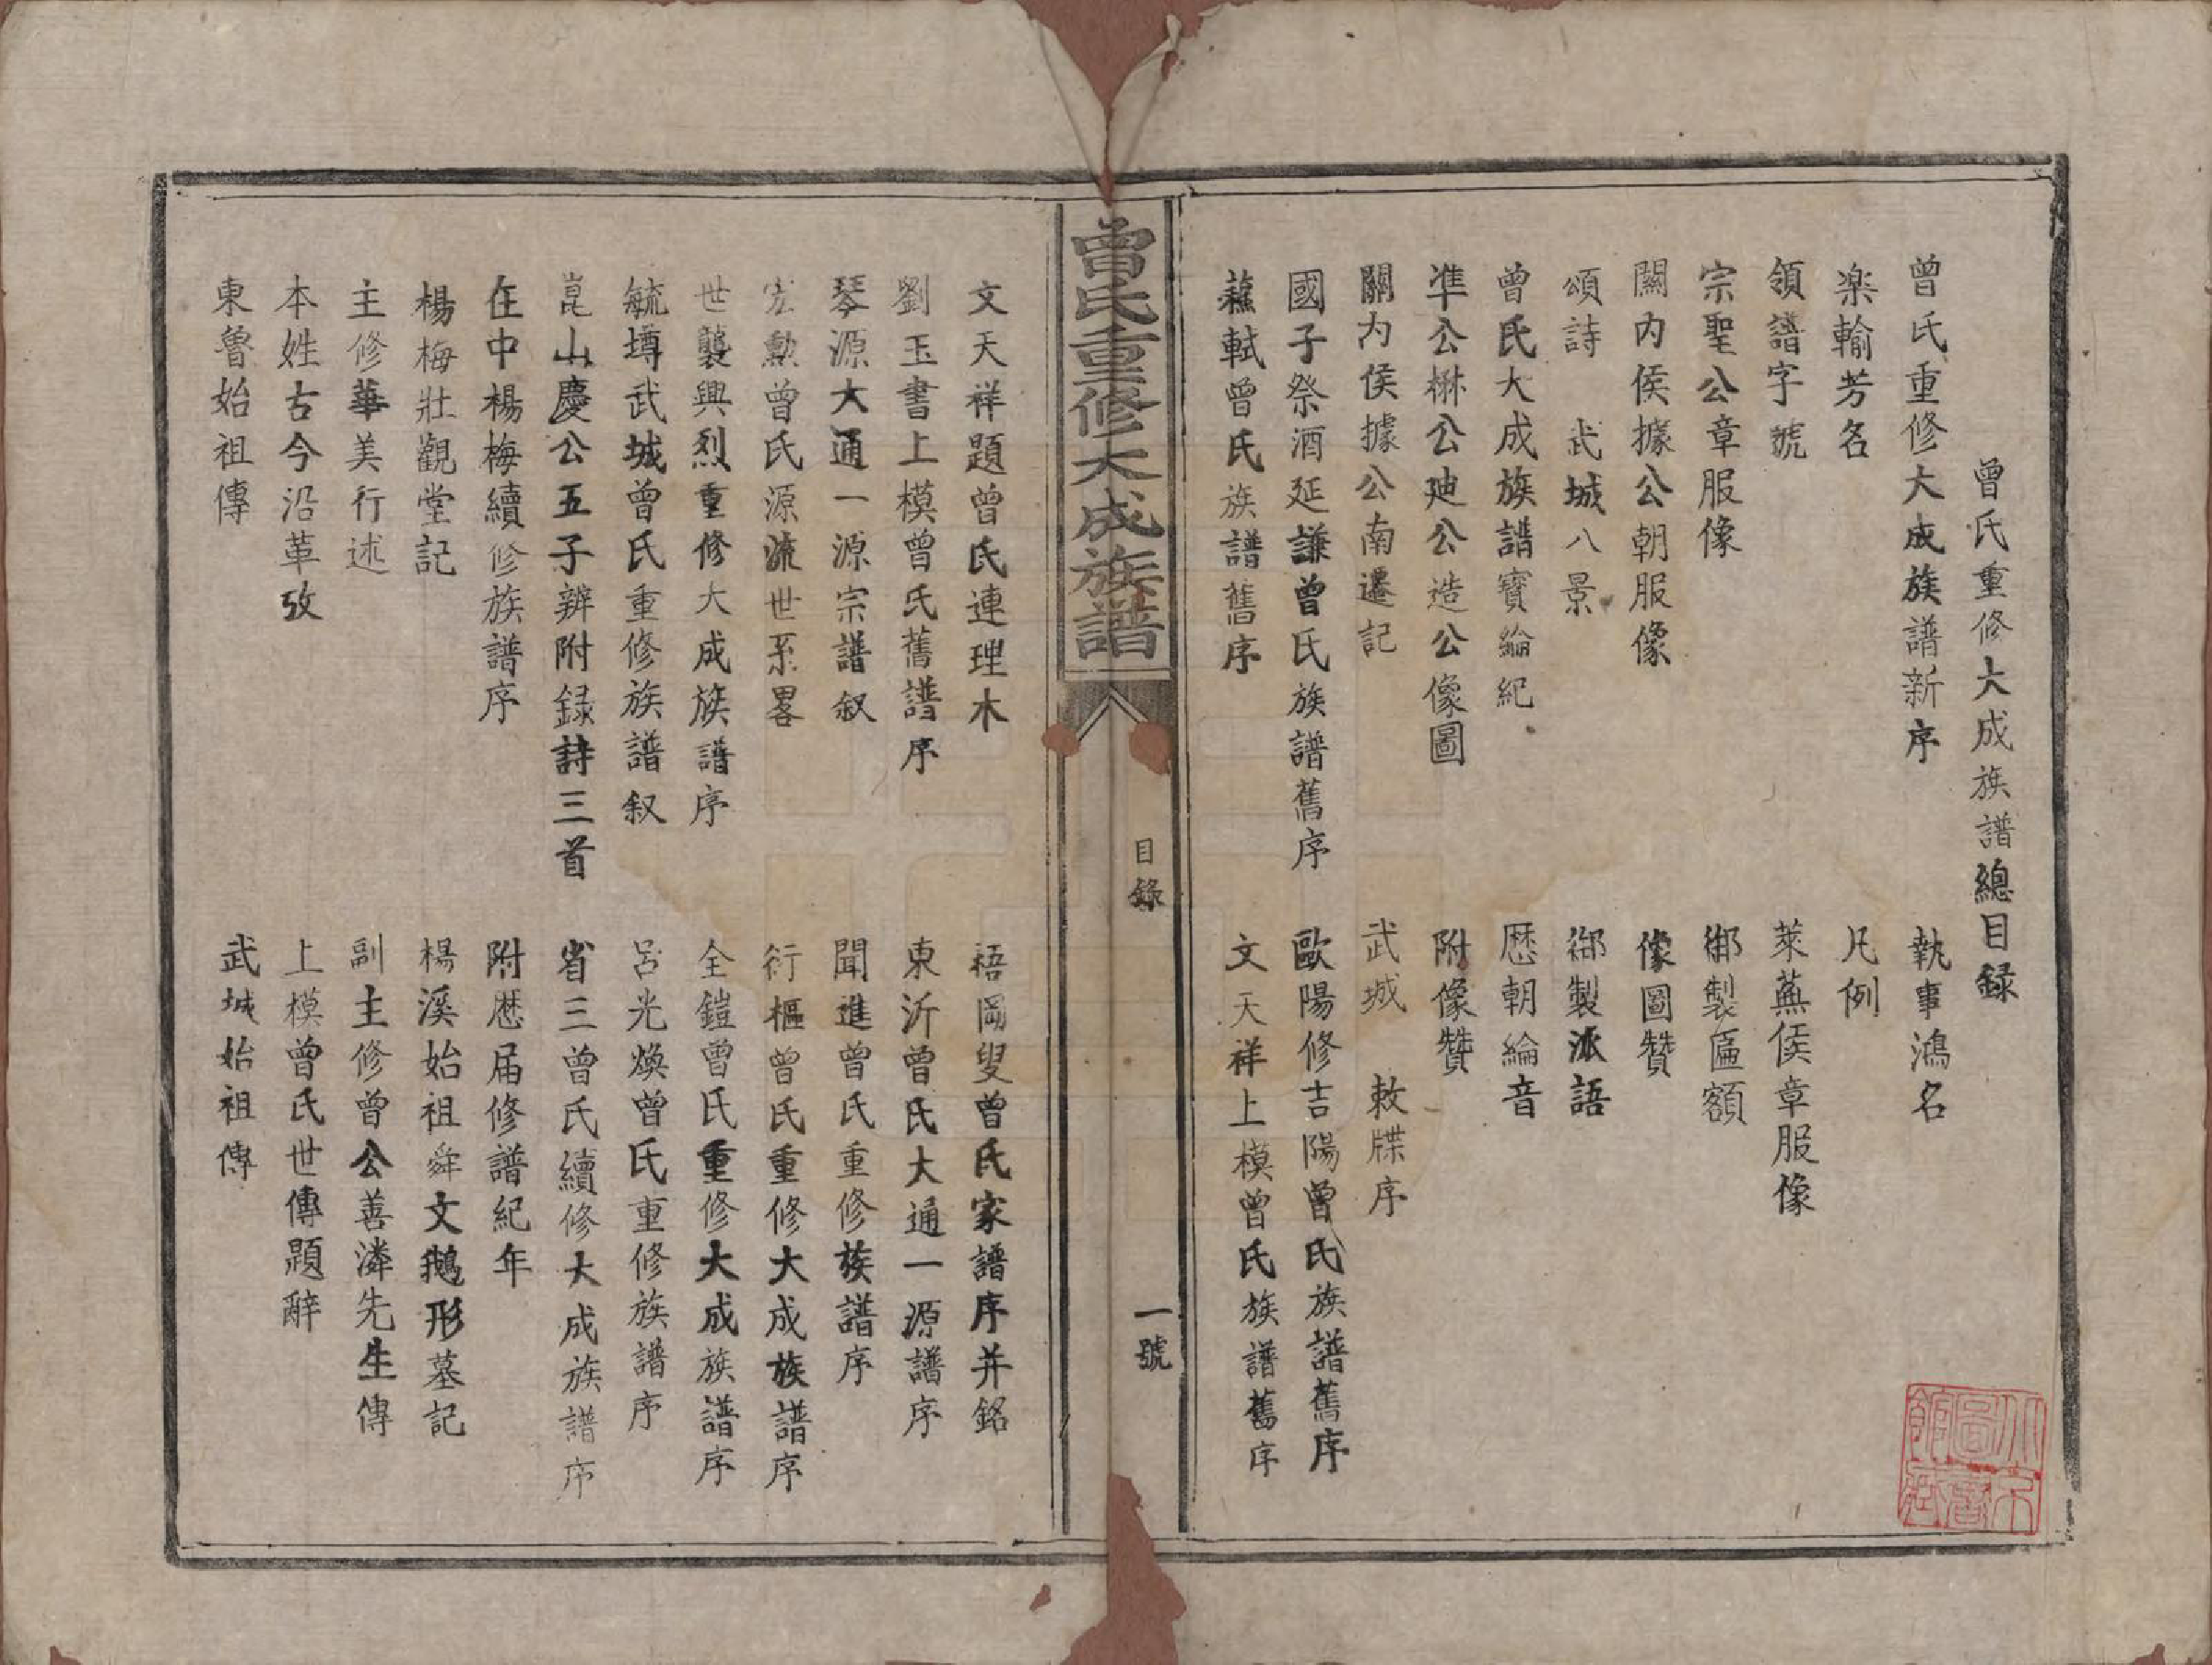 曾氏重修大成族譜總目録
曾氏重修大成族譜新序　執事鴻名
楽輸芳名　凡例
領譜字號　萊蕪侯章服像
宗聖公章服像　御製匾額
關内侯據公朝服像　像圖贊
頌詩　武城八景　御製派語
曾氏大成族譜寶綸紀　歷朝綸音
準公楙公廸公造公像圖　附像贊
關内侯據公南遷記　武城　敕牒序
國子祭酒延謙曾氏族譜舊序　歐陽修吉陽曾氏族譜舊序
蘓軾曾氏族譜舊序　文天祥上模曾氏族譜舊序
曾氏重修大成族譜
目錄
一號
文天祥題曾氏連理木　梧岡叟曾氏家譜序并銘
劉玉書上模曾氏舊譜序　東沂曾氏大通一源譜序
琴源大通一源宗譜叙　聞進曾氏重修族譜序
宏勲曾氏源流世系畧　衍樞曾氏重修大成族譜序
世襲興烈重修大成族譜序　全鎧曾氏重修大成族譜序
毓墫武城曾氏重修族譜叙　呂光煥曾氏重修族譜序
崑山慶公五子辨附録詩三首　省三曾氏續修大成族譜序
在中楊梅續修族譜序　附歷届修譜紀年
楊梅壯觀堂記　楊溪始祖舜文鵝形墓記
主修華美行述　副主修曾公善潾先生傳
本姓古今沿革攷　上模曾氏世傳題辭
東魯始祖傳　武城始祖傳